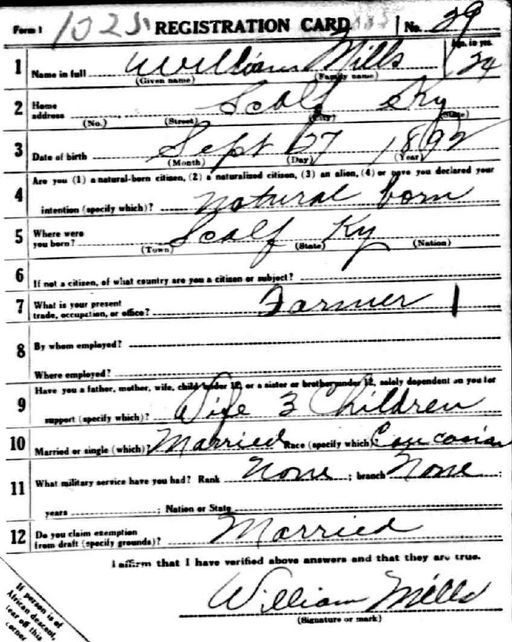 Form 1 1025 REGISTRATION CARD No. 29
1 Name in full William Mills Age, in yrs. 24
(Given name) (Family name)
2 Home address Scalf Ky
(No.) (Street) (City) (State)
3 Date of birth Sept 27 1892
(Month) (Day) (Year)
Are you (1) a natural-born citizen, (2) a naturalized citizen, (3) an alien, (4) or have you declared your
4 intention (specify which)? natural born
5 Where were you born? Scalf Ky
(Town) (State) (Nation)
6 If not a citizen, of what country are you a citizen or subject?
7 What is your present trade, occupation, or office? Farmer
8 By whom employed?
Where employed?
Have you a father, mother, wife, child under 12, or a sister or brother under 12, solely dependent on you for
9 support (specify which)? Wife 3 Children
10 Married or single (which)? Married Race (specify which)? Caucasian
11 What military service have you had? Rank None ; branch None ;
years ; Nation or State
12 Do you claim exemption from draft (specify grounds)? Married
I affirm that I have verified above answers and that they are true.
William Mills
(Signature or mark)
If person is of
African descent,
tear off this
corner